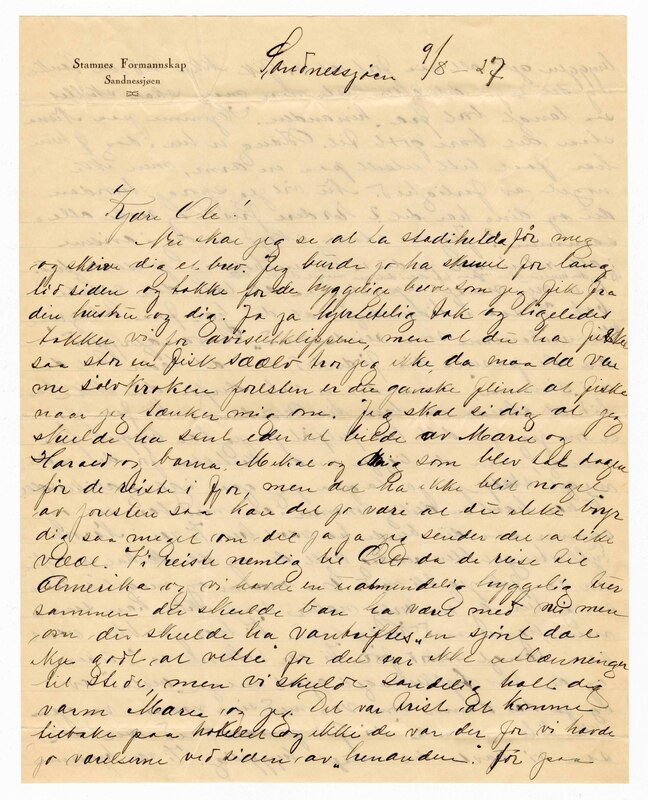 Stamnes Formannskap
Sandnessjøen
Sandnessjøen 9/8 – 27
Kjære Ole!
Nu skal jeg se at ta stadihelda for meg
og skrive dig et brev. Jeg burde jo ha skrevet for lang
tid siden og takke for de hyggelige breve som jeg fik fra
din hustru og dig. Ja ja hjertelig tak og ligeledes
takker vi for avisutklippene men at du ha fisket
saa stor en fisk sjælv tror jeg ikke da maa det være
me sølvkroken foresten er du ganske flink at fiske
naar jeg tænker mig om. Jeg skal si dig at jeg
skulde ha sent eder et bilde av Marie og
Harald og barna. Mikal og mig som blev tat dagen
før de reiste i fjor, men det ha ikke blit noget
av foresten saa kan det jo være at du ikke bryr
dig saa meget om det ja ja jeg sender det a like
vææl. Vi reiste nemlig til Oslo da de reise til
Amerika og vi havde en ualmindelig hyggelig tur
sammen du skulde bare ha vært med men
om du skulde ha vantriftes en sjønt da e
ikje godt at vette for det var ikke utlænninger
til stede, men vi skulde sandelig holt dig
varm Marie og jeg. Det var trist at komme
tilbake paa hotellet og ikke de var der for vi havde
jo værelserne ved siden av "henanden". for paa